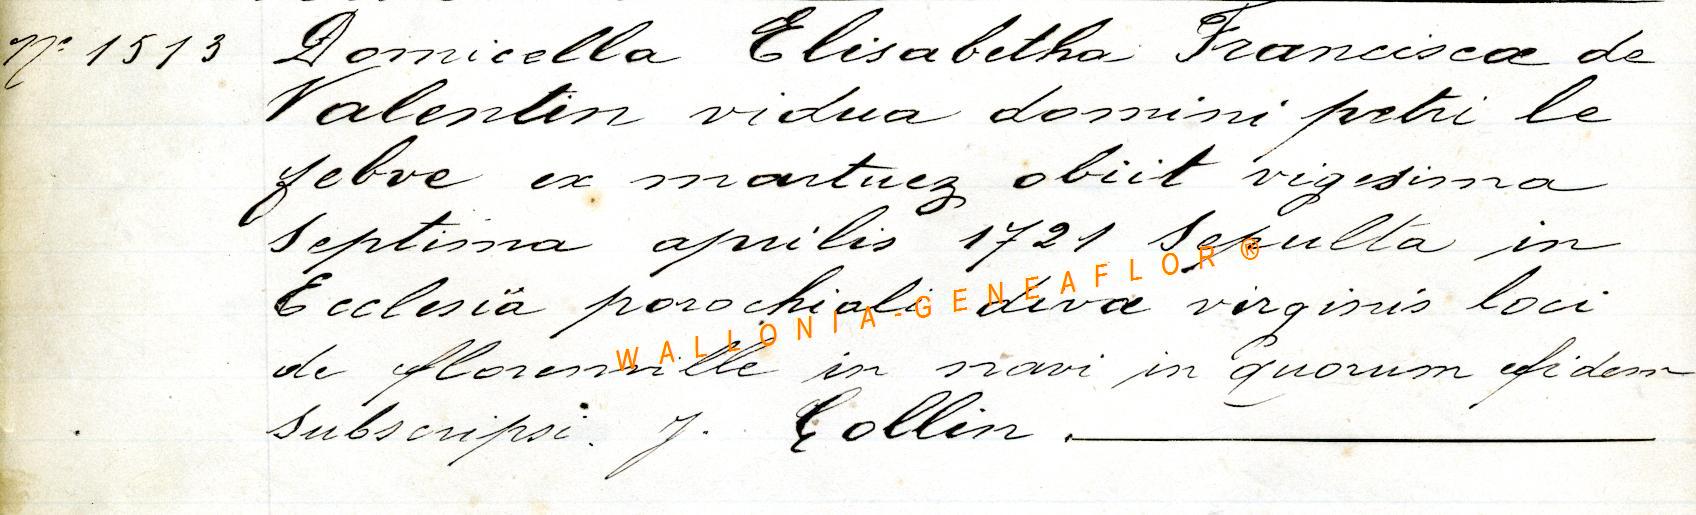 N° 1513 Domicella Elisabetha Franciscæ de
Valentin vidua domini petri le
febvre ex martuez obiit vigesima
septima aprilis 1721 Sepulta in
Ecclesiä parochiali divæ virginis loci
de florenville in navi in quorum fidem
subscripsi. J. Collin.
WALLONIA-GENEAFLOR®